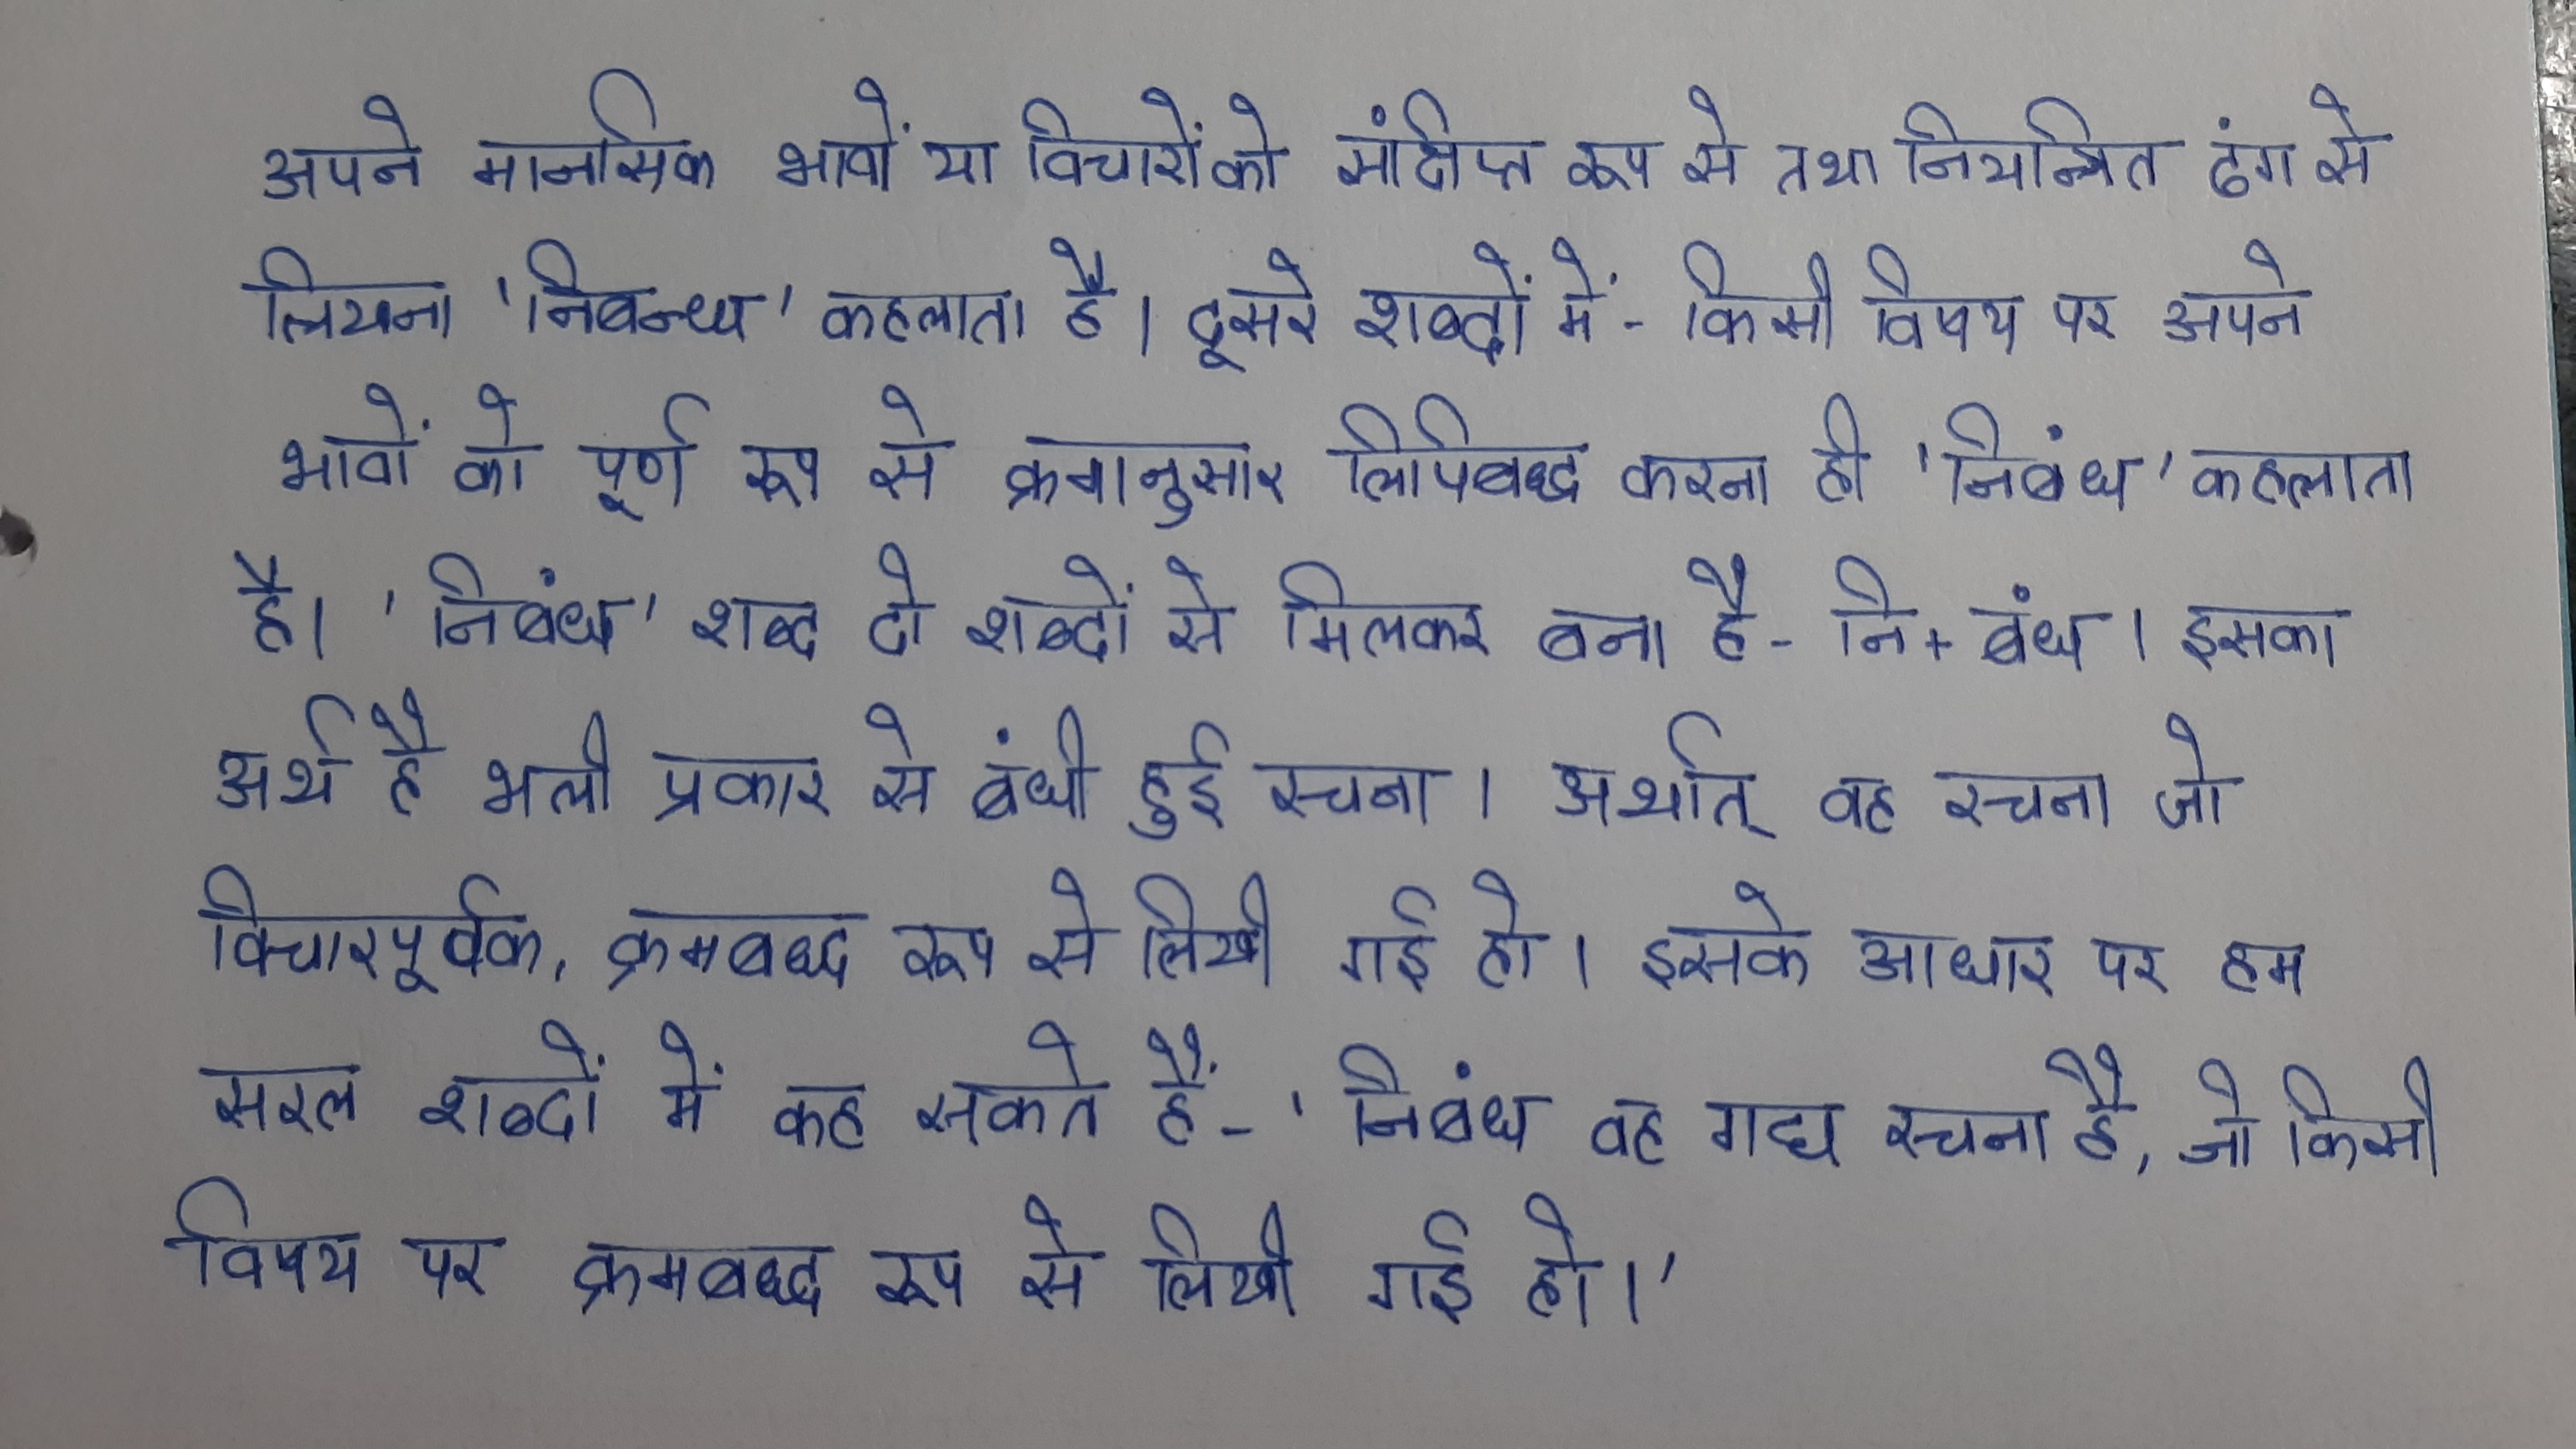 अपने मानसिक भावों या विचारों को संक्षिप्त रूप से तथा नियन्त्रित ढंग से
लिखना 'निबन्ध' कहलाता है। दूसरे शब्दों में - किसी विषय पर अपने
भावों को पूर्ण रूप से क्रमानुसार लिपिबद्ध करना ही 'निबंध' कहलाता
है। 'निबंध' शब्द दो शब्दों से मिलकर बना है - नि + बंध । इसका
अर्थ है भली प्रकार से बंधी हुई रचना । अर्थात् वह रचना जो
विचारपूर्वक, क्रमबद्ध रूप से लिखी गई हो । इसके आधार पर हम
सरल शब्दों में कह सकते हैं - 'निबंध वह गद्य रचना है, जो किसी
विषय पर क्रमबद्ध रूप से लिखी गई हो।'